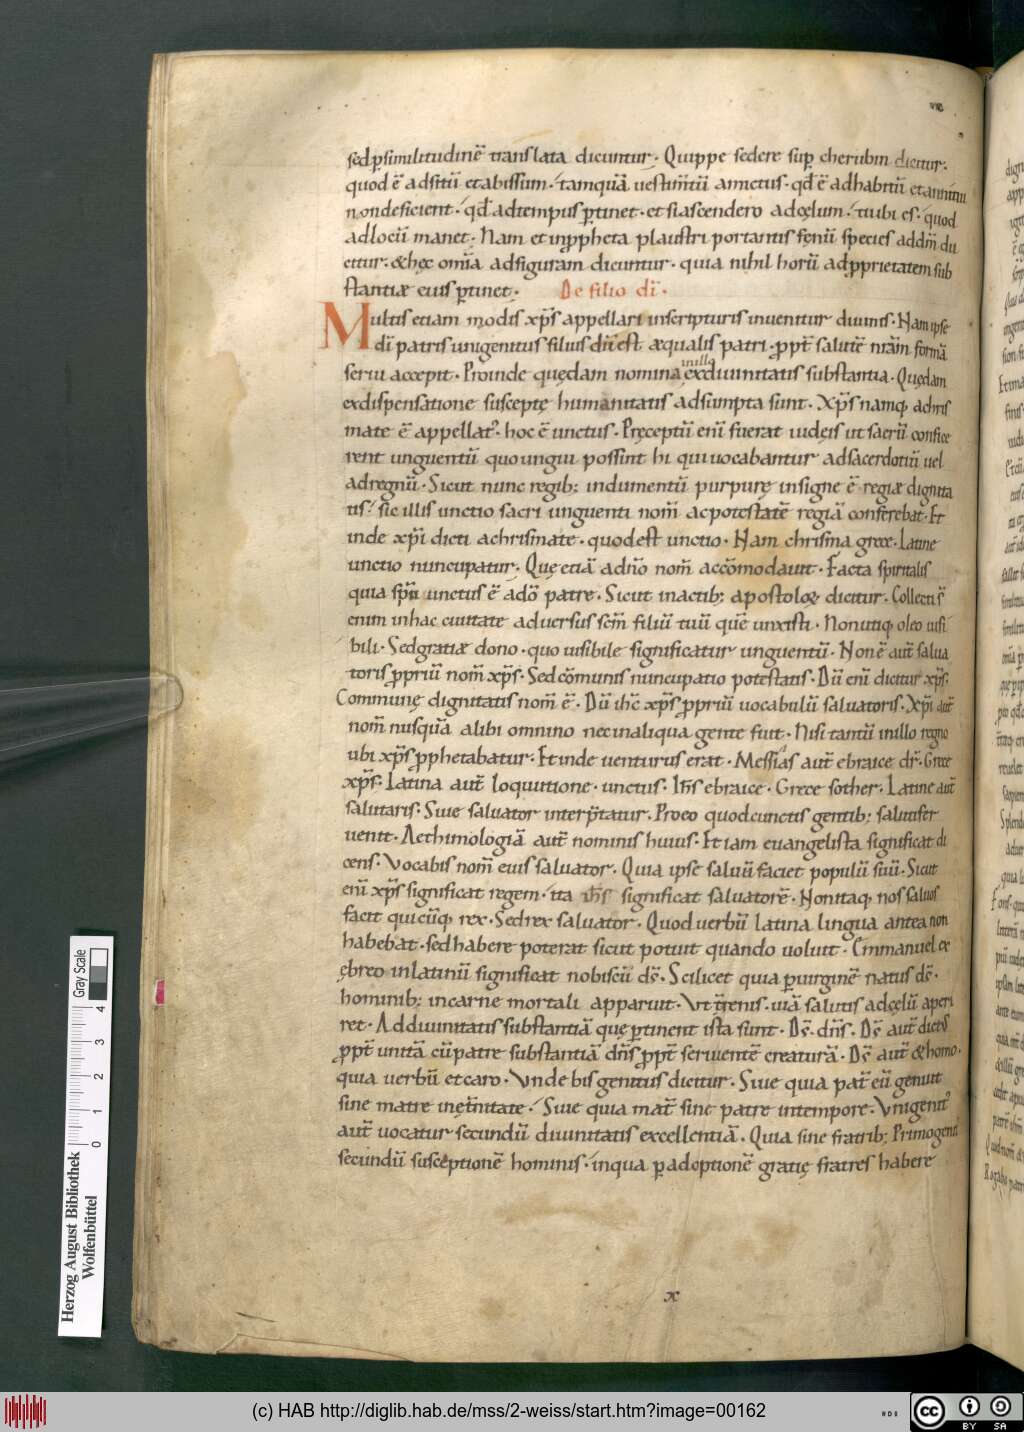 sedꝑsimilitudinē translata dicuntur. Quippe sedere suꝑ cherubin dicitur.
quod ē adsitū et abissum. tamquā uestimtū amictus. qd̄ ē ad habitū et annitui
non deficient. qd̄ ad tempus ꝑtinet. et si ascendero adcęlum. tu ibi es. quod
ad locū manet. Nam et inꝓpheta plaustri portantis fęnū species addm̄ di
citur. & hęc omīa ad figuram dicuntur. quia nihil horū ad ꝓprietatem sub
stantiæ eius ꝑtinet. De filio di.
Multis etiam modis xp̄s appellari inscripturis inuenitur diuinis. Nam ipse
di patris unigenitus filius dū est æqualis patri. ꝓpt̄ salutē nrām formā
serui accepit. Proinde quędam nomina inillo exdiuinitatis substantia. Quędam
exdispensatione susceptę humanitatis adsumpta sunt. Xp̄s namq; achris
mate ē appellat᾿. hoc ē unctus. Pręceptū enī fuerat iudęis ut sacrū confice
rent unguentū quo ungui possint hi qui uocabantur adsacerdotiū uel
adregnū. Sicut nunc regib; indumentū purpurę insigne ē regiæ dignita
tis. sic illis unctio sacri unguenti nom̄ ac potestatē regiā conferebat. Et
inde xp̄i dicti achrismate. quod est unctio. Nam chrisma grece. Latine
unctio nuncupatur. Quę etiā adn̄o nom̄ accōmodauit. Facta spiritalis
quia sp̄u unctus ē adō patre. Sicut inactib; apostoloꝝ dicitur. Collecti s̄
enim inhac ciuitate aduersus sc̄m filiū tuū quē unxisti. Non utiq; oleo uisi
bili. Sed gratiæ dono. quo uisibile significatur unguentū. Non ē aut̄ salua
toris ꝓpriū nom̄ xp̄s. Sed cōmunis nuncupatio potestatis. Dū enī dicitur xp̄s.
Commune dignitatis nom̄ ē. Dū ihc̄ xp̄s ꝓpriū uocabulū saluatoris. Xp̄i aut̄
nom̄ nusquā alibi omnino nec inaliqua gente fuit. Nisi tantū inillo regno
ubi xp̄s ꝓphetabatur. Et inde uenturus erat. Messias aut̄ ebraice dr̄. Grece
xp̄s. Latina aut̄ loquutione. unctus. Ih̄s ebraice. Grece sother. Latine aut̄
salutaris. Siue saluator interp̄tatur. Pro eo quod cunctis gentib; salutifer
uenit. Aethimologiā aut̄ nominis huius. Etiam euangelista significat di
cens. Vocabis nom̄ eius saluator. Quia ipse saluū faciet populū suū. Sicut
enī xp̄s significat regem. ita ih̄s significat saluatorē. Non itaq; nos saluos
facit quicūq; rex. Sed rex saluator. Quod uerbū latina lingua antea non
habebat. sed habere poterat sicut potuit quando uoluit. Emmanuel ex
ębreo inlatinū significat nobiscū ds̄. Scilicet quia ꝑuirginē natus ds̄.
hominib; incarne mortali apparuit. Vt t̄renis. uiā salutis adcęlū aperi
ret. Ad diuinitatis substantiā quę ꝑtinent ista sunt. Ds̄. dn̄s. Ds̄ aut̄ dictus
ꝓpt̄ unitā cū patre substantiā dn̄s ꝓpt̄ seruientē creaturā. Ds̄ aut̄ & homo.
quia uerbū et caro. Vnde bis genitus dicitur. Siue quia pat̄ eū genuit
sine matre inęt̄nitate. Siue quia mat̄ sine patre intempore. Vnigenit᾿
aut̄ uocatur secundū diuinitatis excellentiā. Quia sine fratrib; Primogenit᾿
secundū susceptionē hominis. inqua ꝑ adoptionē gratię fratres habere
x
Gray Scale
4 3 2 1 0
Herzog August Bibliothek
Wolfenbüttel
(c) HAB http://diglib.hab.de/mss/2-weiss/start.htm?image=00162
cc BY SA